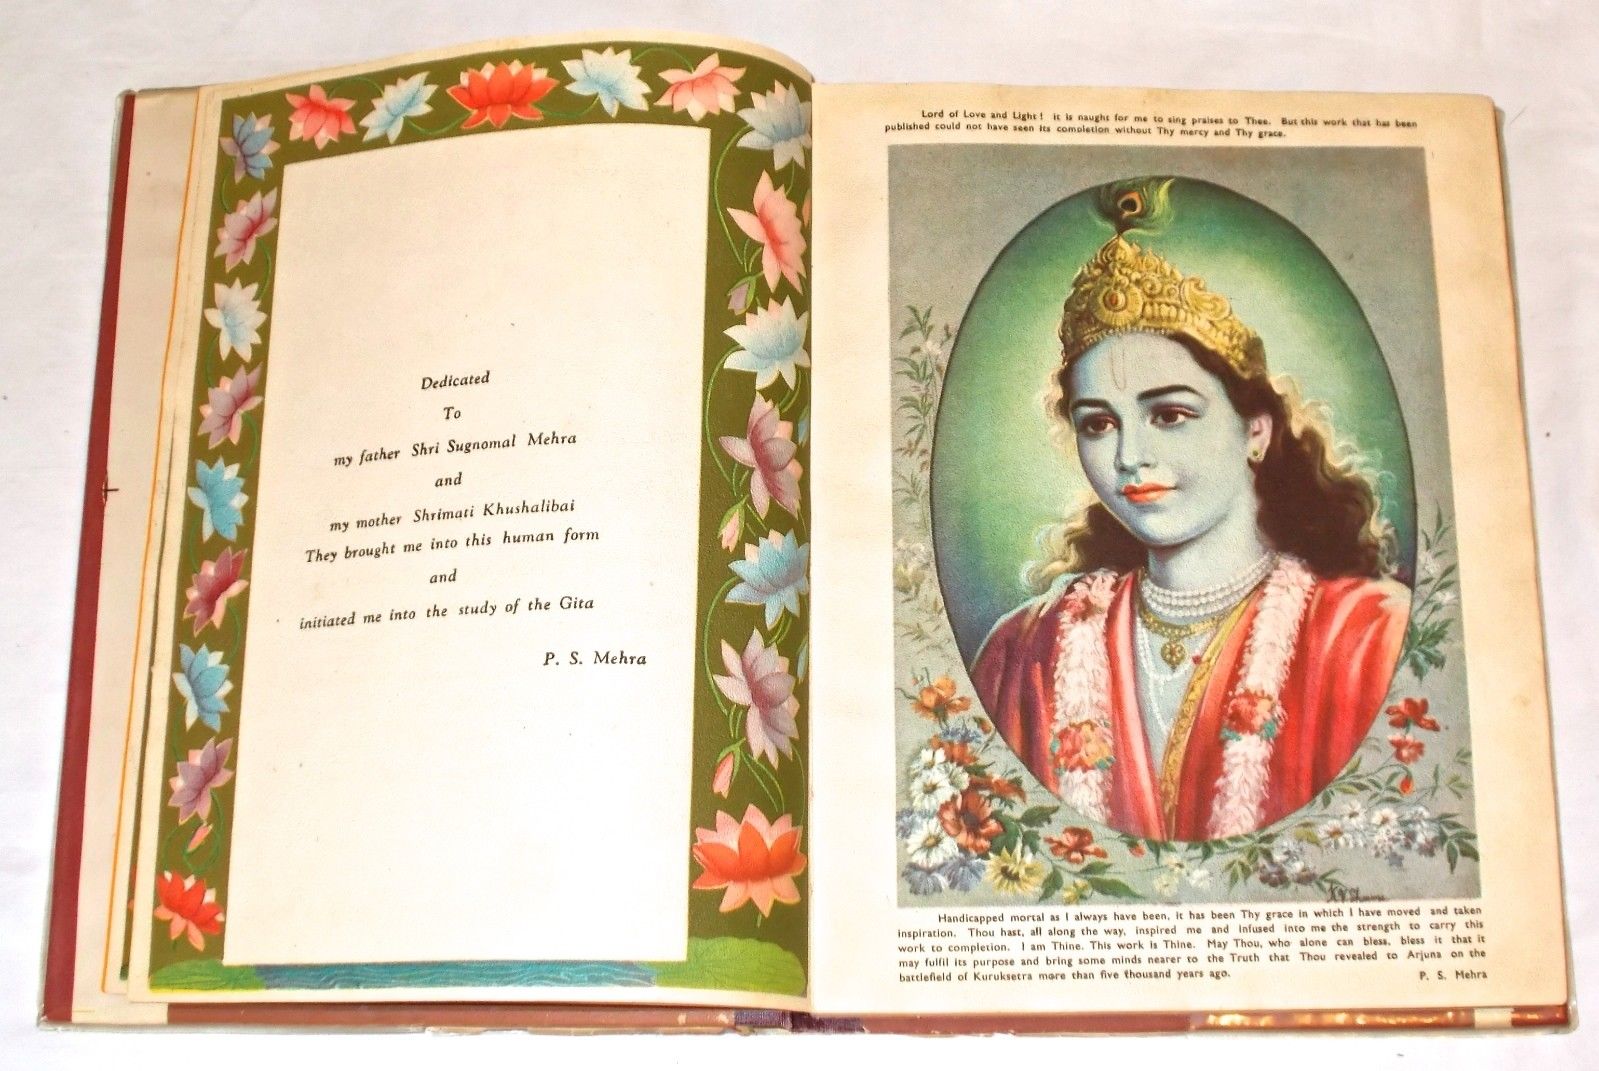 Dedicated
To
my father Shri Sugnomal Mehra
and
my mother Shrimati Khushalibai
They brought me into this human form
and
initiated me into the study of the Gita
P. S. Mehra
Lord of Love and Light! it is naught for me to sing praises to Thee. But this work that has been
published could not have seen its completion without Thy mercy and Thy grace.
Handicapped mortal as I always have been, it has been Thy grace in which I have moved and taken
inspiration. Thou hast, all along the way, inspired me and infused into me the strength to carry this
work to completion. I am Thine. This work is Thine. May Thou, who alone can bless, bless it that it
may fulfil its purpose and bring some minds nearer to the Truth that Thou revealed to Arjuna on the
battlefield of Kuruksetra more than five thousand years ago.
P. S. Mehra